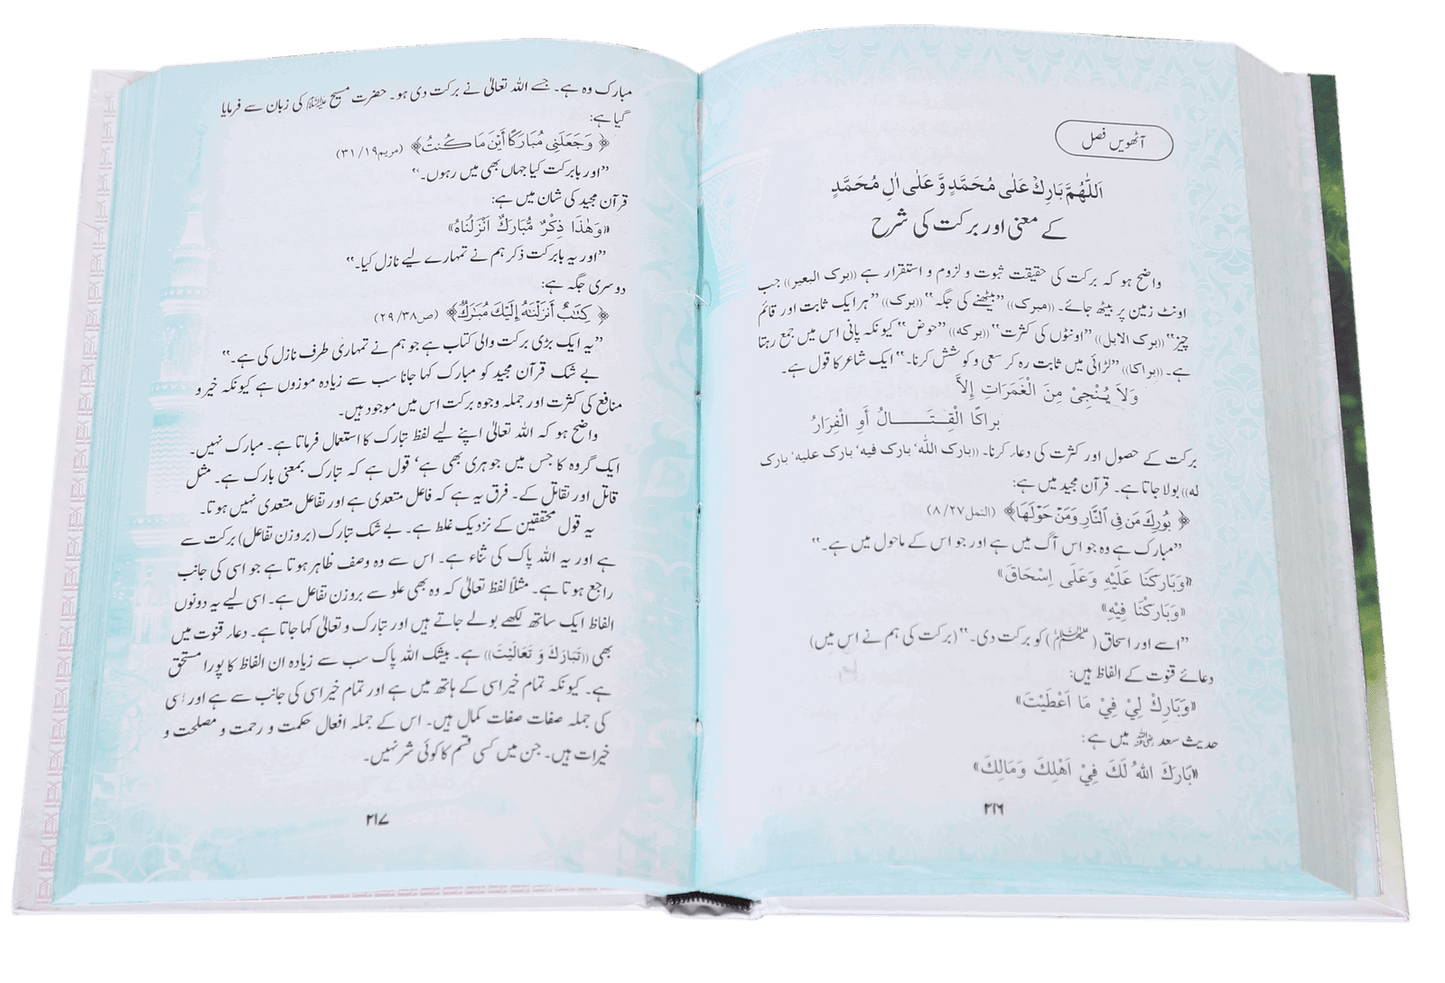 آٹھویں فصل
اَللّٰهُمَّ بَارِكْ عَلٰى مُحَمَّدٍ وَّ عَلٰى اٰلِ مُحَمَّدٍ
کے معنی اور برکت کی شرح
واضح ہو کہ برکت کی حقیقت ثبوت و لزوم و استقرار ہے ((برك البعير)) جب
اونٹ زمین پر بیٹھ جائے۔ ((مبرك)) ”بیٹھنے کی جگہ“ ((برك)) ”ہر ایک ثابت اور قائم
چیز“ ((برك الابل)) ”اونٹوں کی کثرت“ ((بركه)) ”حوض“ کیونکہ پانی اس میں جمع رہتا
ہے۔ ((براكا)) ”لڑائی میں ثابت رہ کر سعی و کوشش کرنا۔“ ایک شاعر کا قول ہے۔
وَلاَ يُنْجِىْ مِنَ الْغَمَرَاتِ اِلاَّ
براكَا الْقِتَـــالُ أَوِ الْفِرَارُ
برکت کے حصول اور کثرت کی دعاء کرنا۔ ((بارك الله‘ بارك فيه‘ بارك عليه‘ بارك
له)) بولا جاتا ہے۔ قرآن مجید میں ہے:
﴿ بُورِكَ مَن فِى ٱلنَّارِ وَمَنْ حَوْلَهَا﴾ (النمل۲۷/ ۸)
”مبارک ہے وہ جو اس آگ میں ہے اور جو اس کے ماحول میں ہے۔“
«وَبَارَكنَا عَلَيْهِ وَعَلَى اِسْحَاقَ»
«وَبَارَكْنَا فِيْهِ»
”اسے اور اسحاق (علیہما السلام) کو برکت دی۔“ (برکت کی ہم نے اس میں)
دعائے قنوت کے الفاظ ہیں:
«وَبَارِكْ لِيْ فِيْ مَا اَعْطَيْتَ»
حدیث سعد رضی اللہ عنہ میں ہے :
«بَارَكَ اللهُ لَكَ فِيْ اَهْلِكَ وَمَالِكَ»
۲۱۶
مبارک وہ ہے۔ جسے اللہ تعالیٰ نے برکت دی ہو۔ حضرت مسیح علیہ السلام کی زبان سے فرمایا
گیا ہے:
﴿ وَجَعَلَنِى مُبَارَكًا أَيْنَ مَا كُنتُ﴾ (مریم۱۹/ ۳۱)
”اور بابرکت کیا جہاں بھی میں رہوں۔“
قرآن مجید کی شان میں ہے:
«وَهٰذَا ذِكْرٌ مُّبَارَكٌ اَنْزَلْنَاهُ»
”اور یہ بابرکت ذکر ہم نے تمہارے لیے نازل کیا۔“
دوسری جگہ ہے:
﴿ كِتَٰبٌ أَنزَلْنَٰهُ إِلَيْكَ مُبَٰرَكٌ﴾ (ص۳۸/ ۲۹)
”یہ ایک بڑی برکت والی کتاب ہے جو ہم نے تمہاری طرف نازل کی ہے۔“
بے شک قرآن مجید کو مبارک کہا جانا سب سے زیادہ موزوں ہے کیونکہ خیر و
منافع کی کثرت اور جملہ وجوہ برکت اس میں موجود ہیں۔
واضح ہو کہ اللہ تعالیٰ اپنے لیے لفظ تبارک کا استعمال فرماتا ہے۔ مبارک نہیں۔
ایک گروہ کا جس میں جوہری بھی ہے‘ قول ہے کہ تبارک بمعنی بارک ہے۔ مثل
قاتل اور تقاتل کے۔ فرق یہ ہے کہ فاعل متعدی ہے اور تفاعل متعدی نہیں ہوتا۔
یہ قول محققین کے نزدیک غلط ہے۔ بے شک تبارک (بروزن تفاعل) برکت سے
ہے اور یہ اللہ پاک کی ثناء ہے۔ اس سے وہ وصف ظاہر ہوتا ہے جو اسی کی جانب
راجع ہوتا ہے۔ مثلاً لفظ تعالیٰ کہ وہ بھی علو سے بروزن تفاعل ہے۔ اسی لیے یہ دونوں
الفاظ ایک ساتھ لکھے بولے جاتے ہیں اور تبارک و تعالیٰ کہا جاتا ہے۔ دعاء قنوت میں
بھی ((تَبَارَكْتَ وَ تَعَالَيْتَ)) ہے۔ بیشک اللہ پاک سب سے زیادہ ان الفاظ کا پورا مستحق
ہے۔ کیونکہ تمام خیر اسی کے ہاتھ میں ہے اور تمام خیر اسی کی جانب سے ہے اور اسی
کی جملہ صفات صفات کمال ہیں۔ اس کے جملہ افعال حکمت و رحمت و مصلحت و
خیرات ہیں۔ جن میں کسی قسم کا کوئی شر نہیں۔
۲۱۷